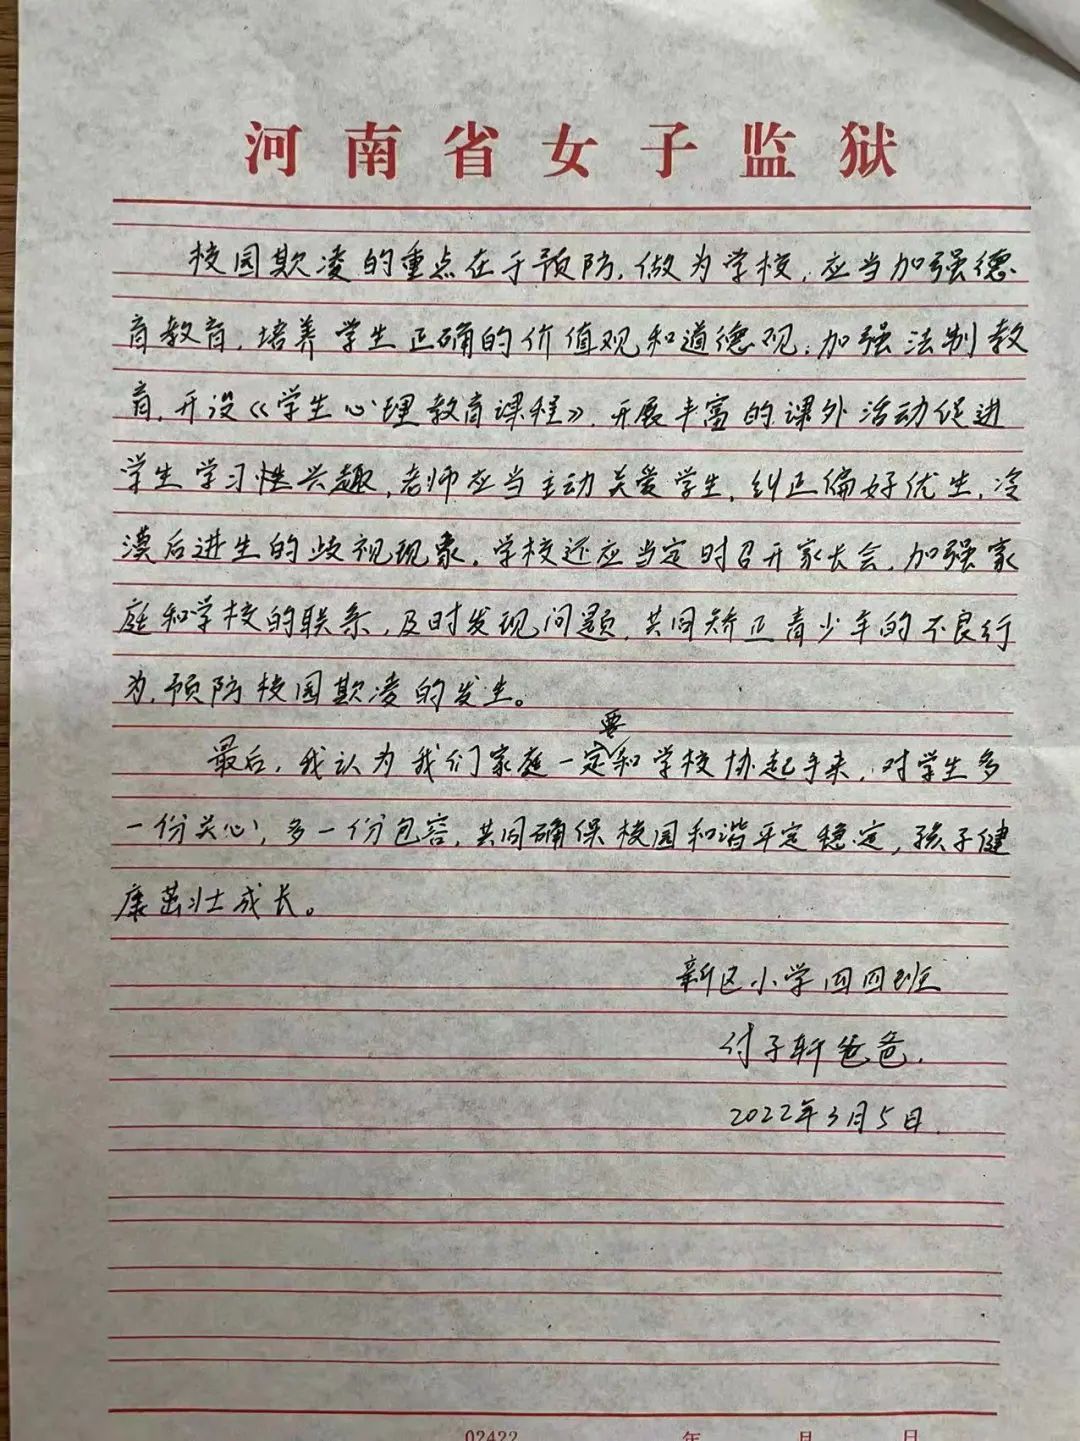 河南省女子监狱
校园欺凌的重点在于预防,做为学校,应当加强德
育教育,培养学生正确的价值观和道德观,加强法制教
育,开设《学生心理教育课程》,开展丰富的课外活动促进
学生学习性兴趣,老师应当主动关爱学生,纠正偏好优生,冷
漠后进生的歧视现象,学校还应当定时召开家长会,加强家
庭和学校的联系,及时发现问题,共同矫正青少年的不良行
为,预防校园欺凌的发生。
最后,我认为我们家庭一定要和学校协起手来,对学生多
一份关心,多一份包容,共同确保校园和谐平定稳定,孩子健
康茁壮成长。
新区小学四四班
付子轩爸爸.
2022年3月5日.
02422 年 月 日